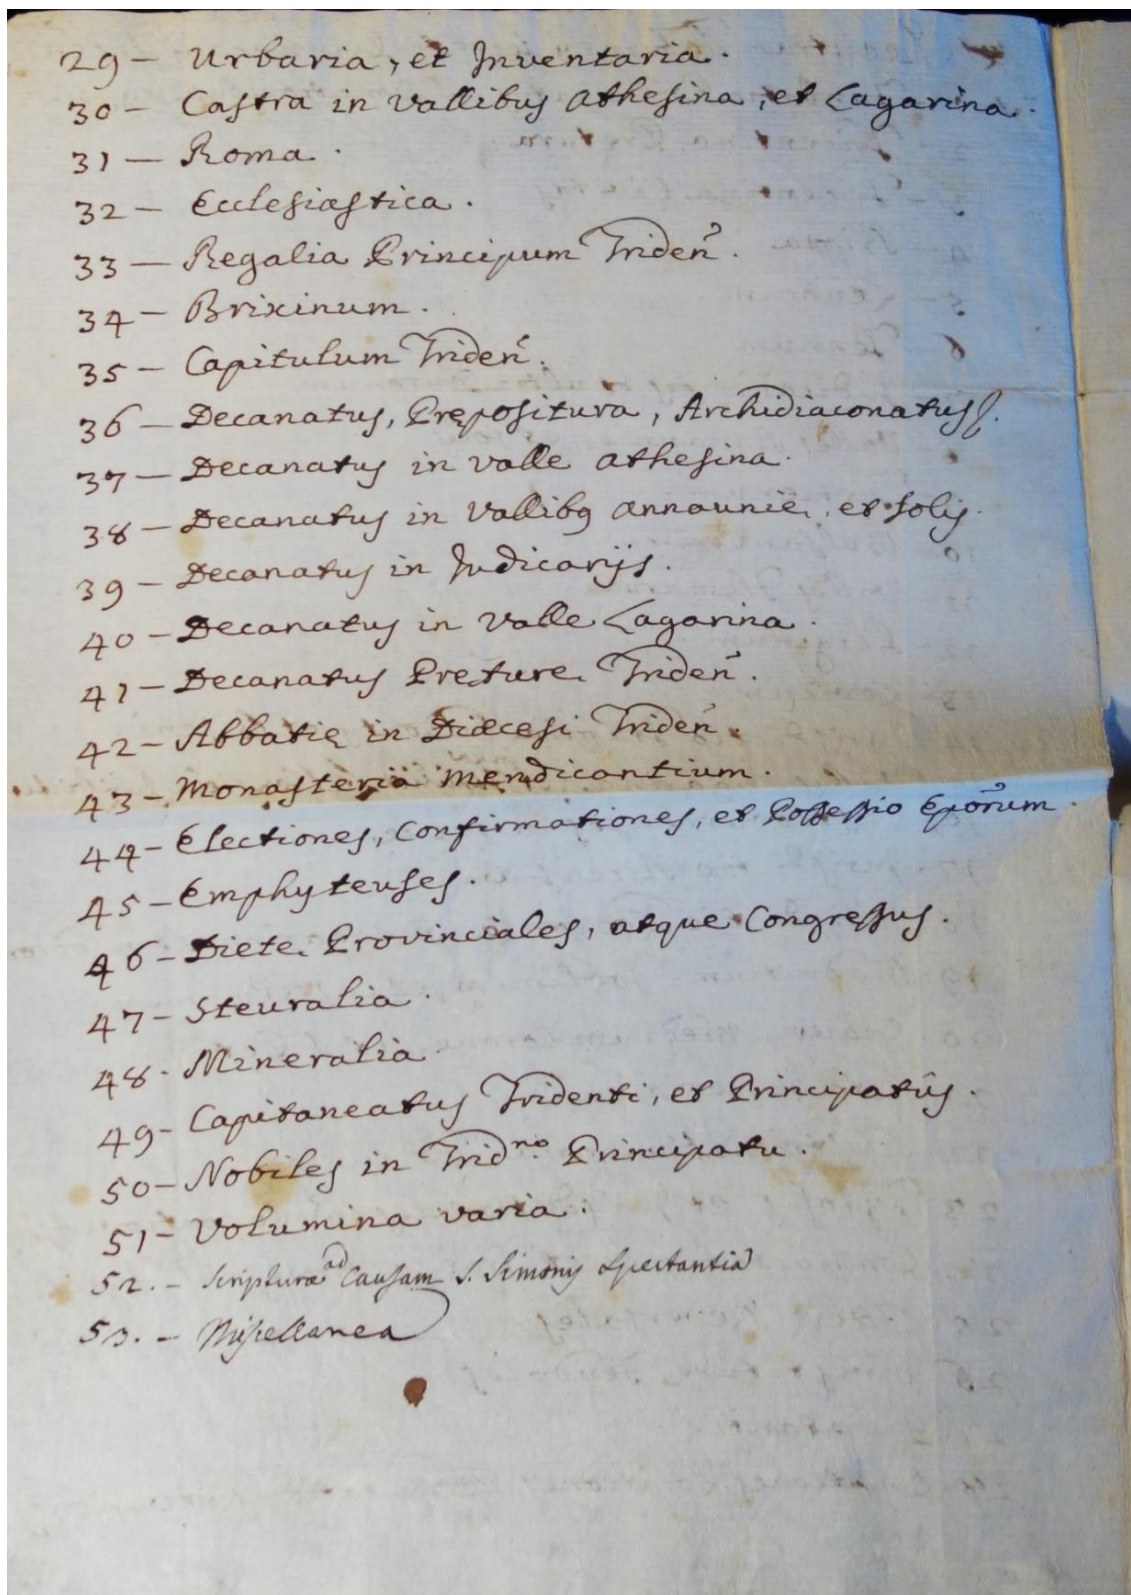 29 - Urbaria, et Inventaria.
30 - Castra in Vallibus Athesina, et Lagarina.
31 - Roma.
32 - Ecclesiastica.
33 - Regalia Principum Triden̄.
34 - Brixinum.
35 - Capitulum Triden̄.
36 - Decanatus, Prępositura, Archidiaconatus.
37 - Decanatus in valle Athesina.
38 - Decanatus in Vallibꝰ Annaunię, et Solis.
39 - Decanatus in Judicarijs.
40 - Decanatus in Valle Lagarina.
41 - Decanatus Pręturę Triden̄.
42 - Abbatię in Diœcesi Triden̄.
43 - Monasteria Mendicantium.
44 - Electiones, Confirmationes, et Possessio Epōrum.
45 - Emphyteuses.
46 - Dietę Provinciales, atque Congressus.
47 - Steuralia.
48 - Mineralia.
49 - Capitaneatus Tridenti, et Principatûs.
50 - Nobiles in Trid.no Principatu.
51 - Volumina varia.
52. - Scripturæ ad Causam S. Simonis Spectantia
53. - Miscellanea